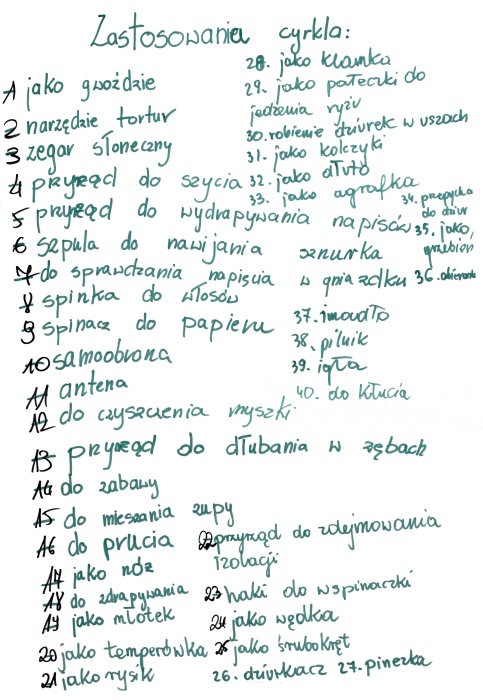 Zastosowania cyrkla:
1 jako gwoździe
2 narzędzie tortur
3 zegar słoneczny
4 przyrząd do szycia
5 przyrząd do wydrapywania napisów
6 szpula do nawijania sznurka
7 do sprawdzania napięcia w gniazdku
8 spinka do włosów
9 spinacz do papieru
10 samoobrona
11 antena
12 do czyszczenia myszki
13 przyrząd do dłubania w zębach
14 do zabawy
15 do mieszania zupy
16 do prucia
17 jako nóż
18 do zdrapywania
19 jako młotek
20 jako temperówka
21 jako rysik
22 przyrząd do zdejmowania
izolacji
23 haki do wspinaczki
24 jako wędka
25 jako śrubokręt
26. dziurkacz 27. pinezka
28. jako klamka
29. jako pałeczki do
jedzenia ryżu
30. robienie dziurek w uszach
31. jako kolczyki
32. jako dłuto
33. jako agrafka
34. przepycha
do dziur
35. jako,
grzebień
36.
37. imadło
38. pilnik
39. igła
40. do kłucia